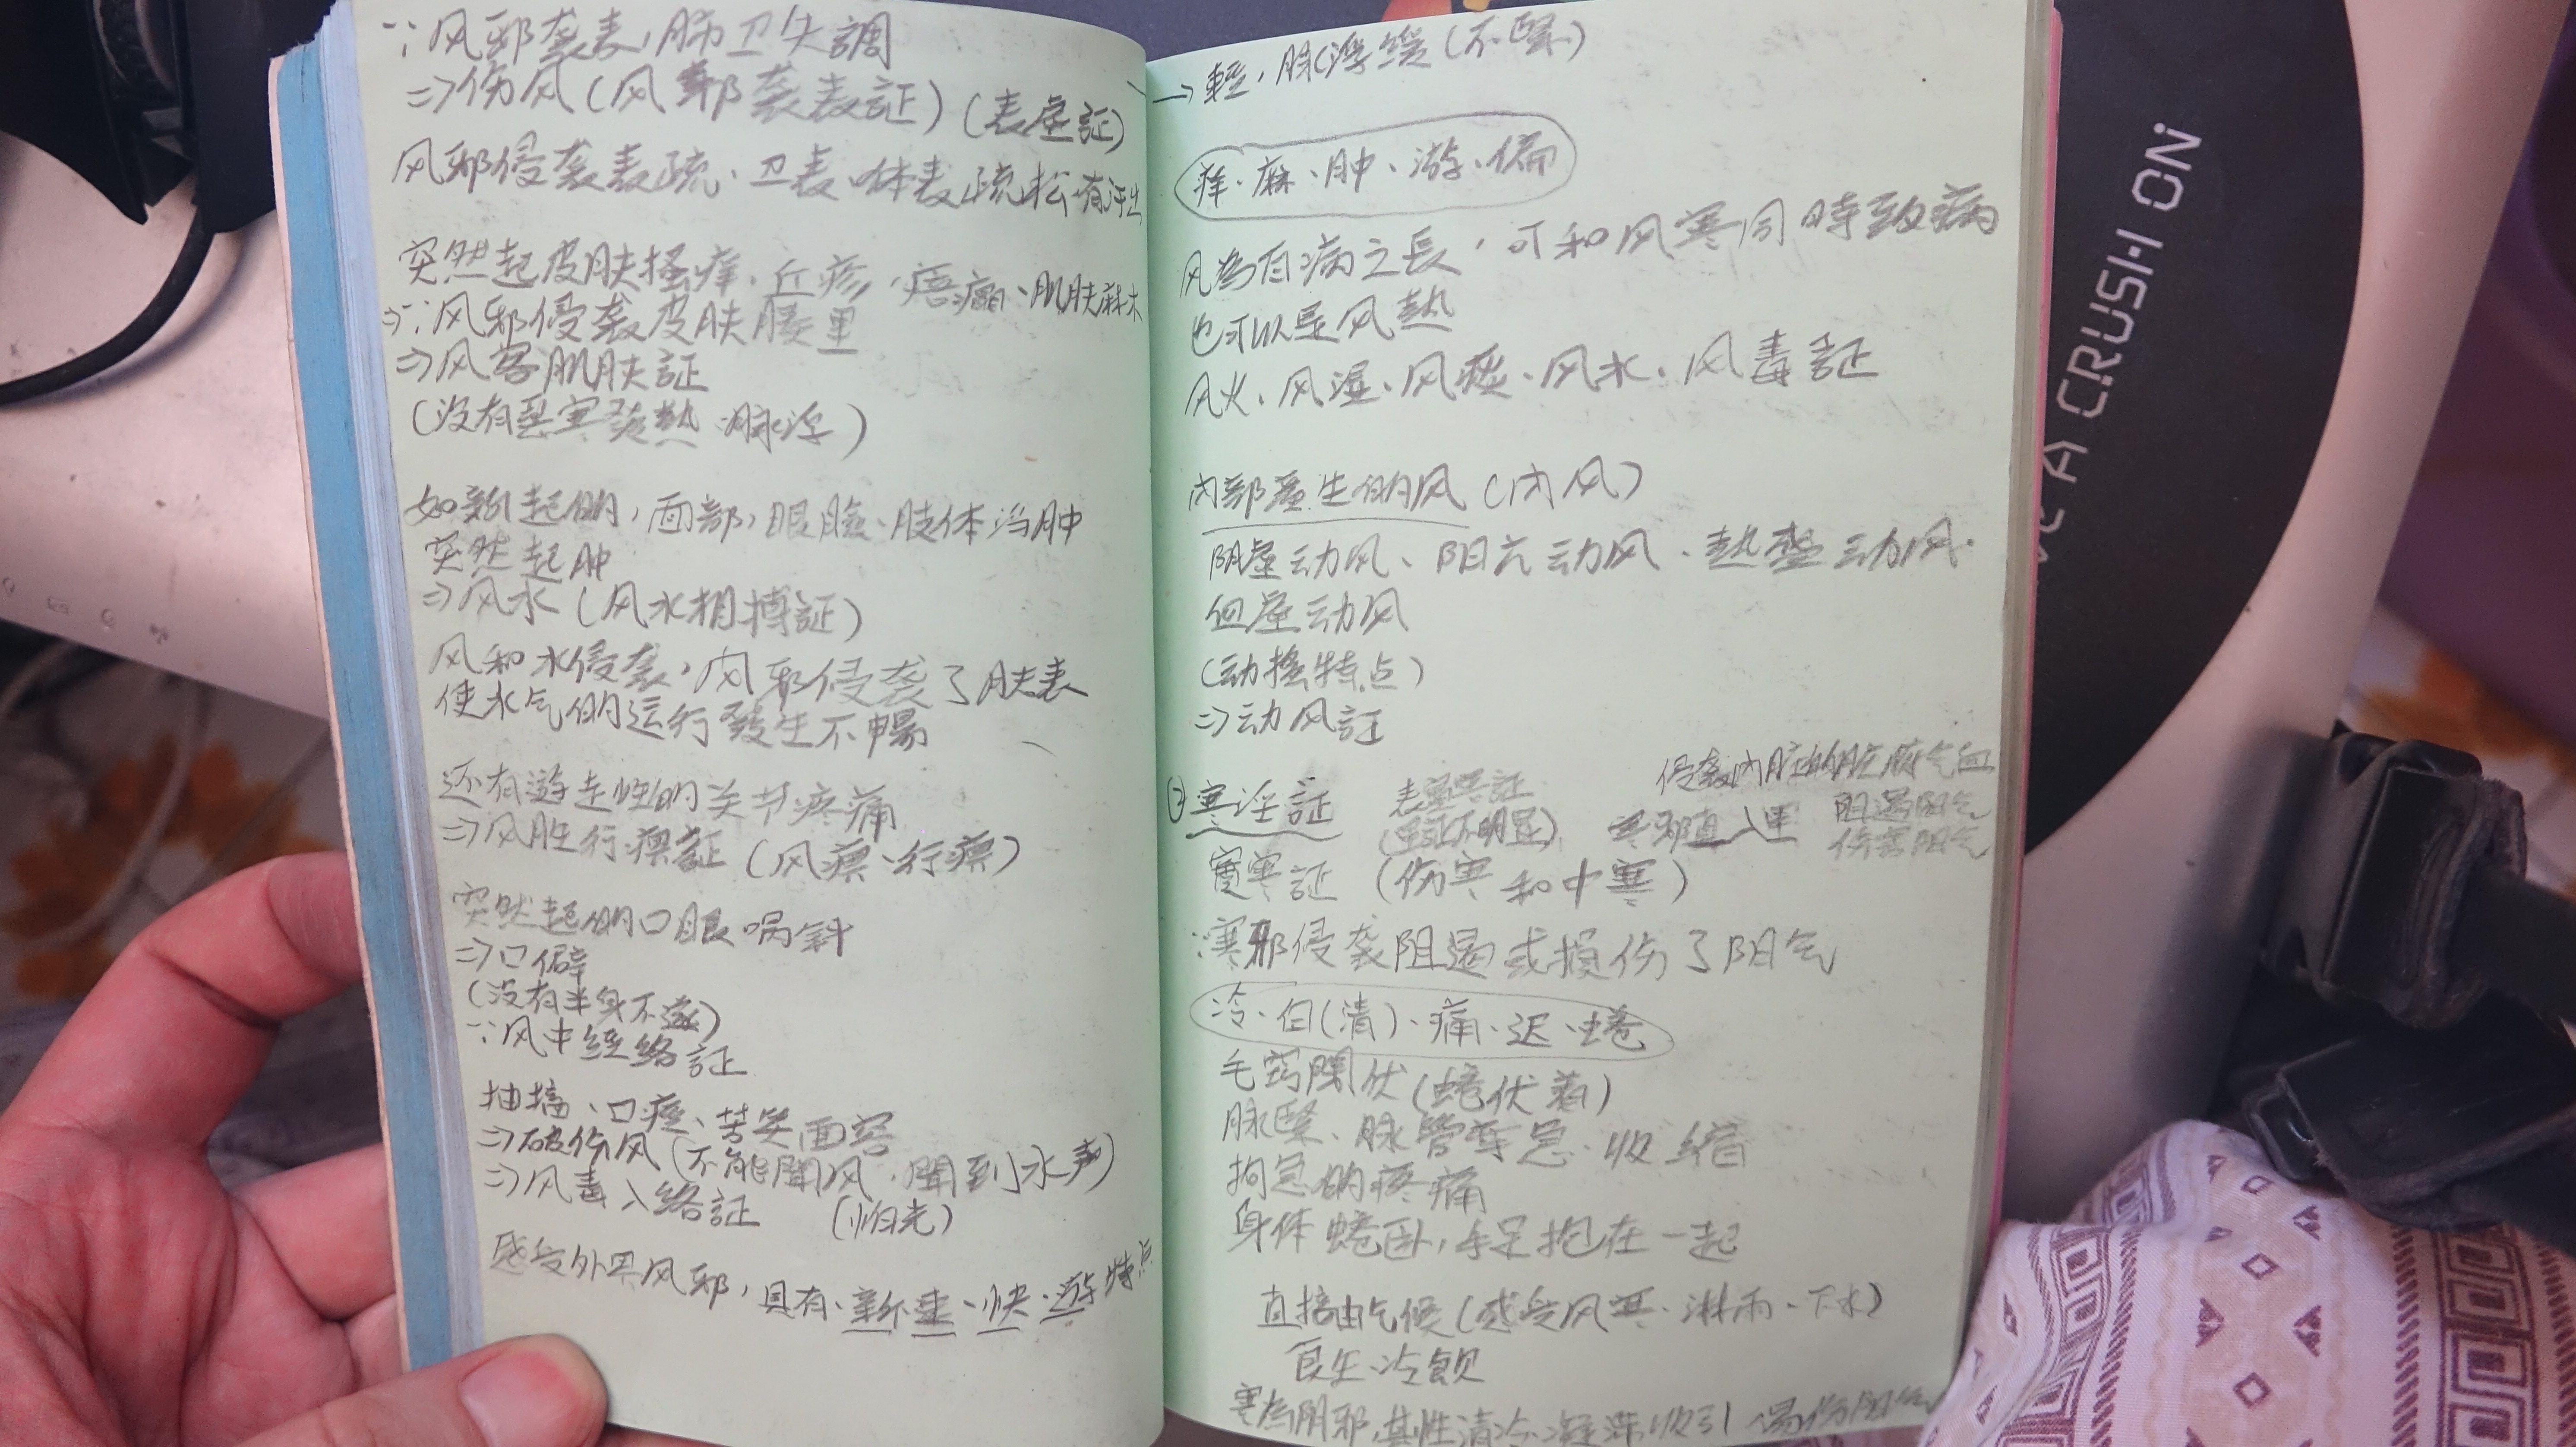 ∵风邪袭表，肺卫失調
⇒伤风(风邪袭表証)(表虚証)
风邪侵袭表疏、卫表、体表疏松、有汗出
突然起皮肤搔痒、丘疹，痞㿔、肌肤麻木
⇒∵风邪侵袭皮肤腠里
⇒风客肌肤証
(没有恶寒発热、脉浮)
如新起的，面部，眼臉、肢体浮肿
突然起肿
⇒风水(风水相搏証)
风和水侵袭，风邪侵袭了肤表
使水气的运行發生不暢
还有游走性的关节疼痛
⇒风胜行痹証(风痹、行痹)
突然起的口眼喎斜
⇒口僻
(没有半身不遂)
∵风中经络証
抽搐、口痉、苦笑面容
⇒破伤风(不能聞风，聞到水声)
⇒风毒入络証 (怕光)
感受外界风邪，具有、新、速、快、游特点
→輕，脉浮缓(不緊)
痒、麻、肿、游、偏
风為百病之長，可和风寒同時致病
也可以是风熱
风火、风湿、风痰、风水、风毒証
内部産生的风(内风)
阴虚动风、阳亢动风、熱盛动风、
血虚动风
(动搖特点)
⇒动风証
②寒淫証 表實寒証 侵袭内脏的脏腑气血
(里証不明显) 寒邪直入里 阻遏阳气
伤害阳气
實寒証 (伤寒和中寒)
∵寒邪侵袭阻遏或損伤了阳气
冷、白(清)、痛、迟、蜷
毛窍閉伏(蜷伏着)
脉緊、脉管牵急、收缩
拘急的疼痛
身体蜷卧，手足抱在一起
直接由气候(感受风寒、淋雨、下水)
食生、冷飲
寒為阴邪，其性清冷、凝滞、收引、易伤阳气
VE A CRUSH ON